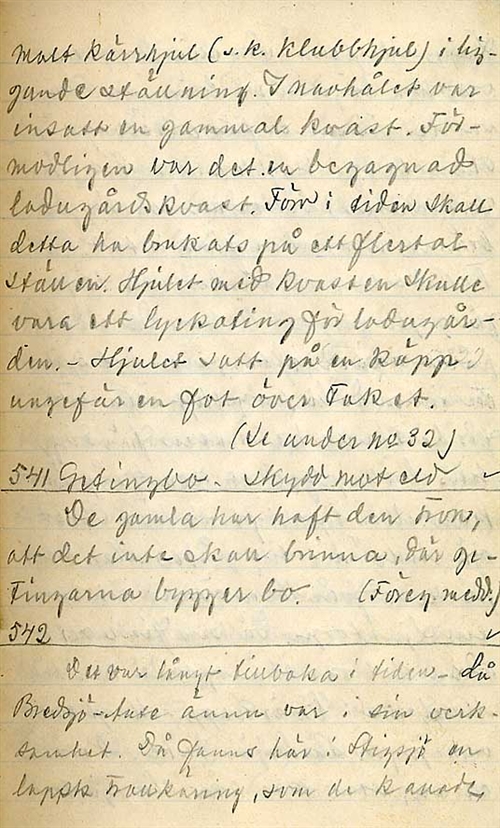 malt kärrhjul (s.k. klubbhjul) i lig-
gande ställning. I navhålet var
insatt en gammal kvast. För-
modligen var det en begagnad
ladugårdskvast. Förr i tiden skall
detta ha brukats på ett flertal
ställen. Hjulet med kvasten skulle
vara ett lyckoting för ladugår-
den. - Hjulet satt på en käpp
ungefär en fot över taket.
(Se under no 32)
541 Getingbo - skydd mot eld ✓
De gamla har haft den tron,
att det inte skall brinna, där ge-
tingarna bygger bo. (Föreg. medd.)
542 ✓
Det var långt tillbaka i tiden - då
Bredsjö- ännu var i sin verk-
samhet. Då fanns här i Stigsjö en
lappsk trollkäring, som de kallade